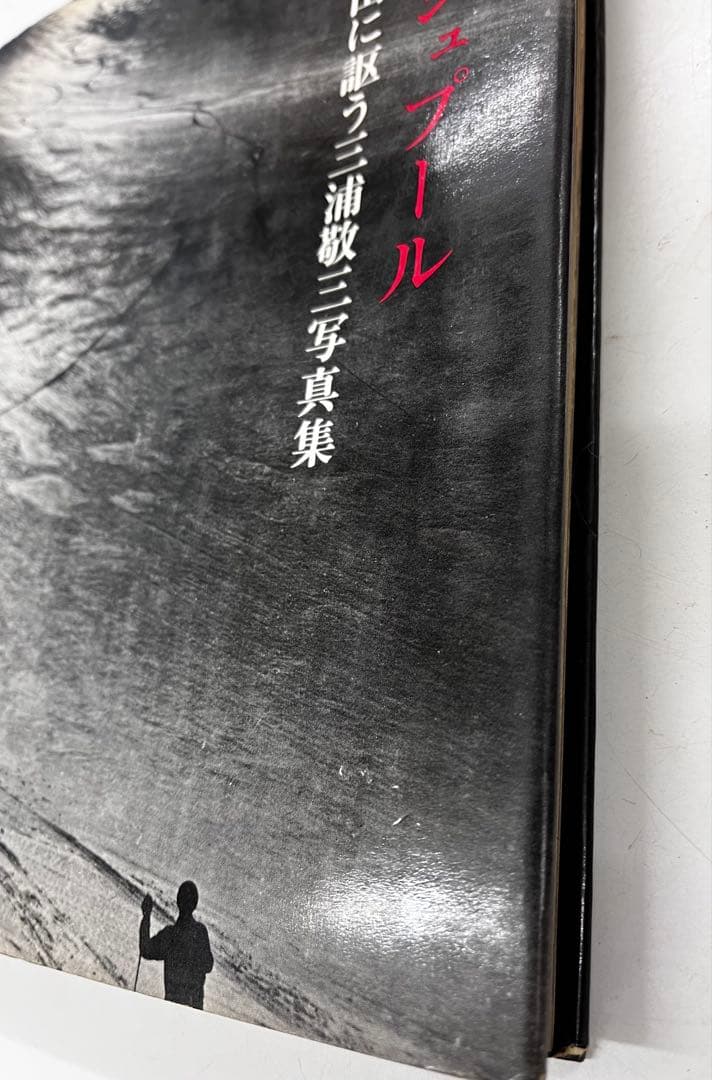 シュプール
に謳う三浦敬三写真集